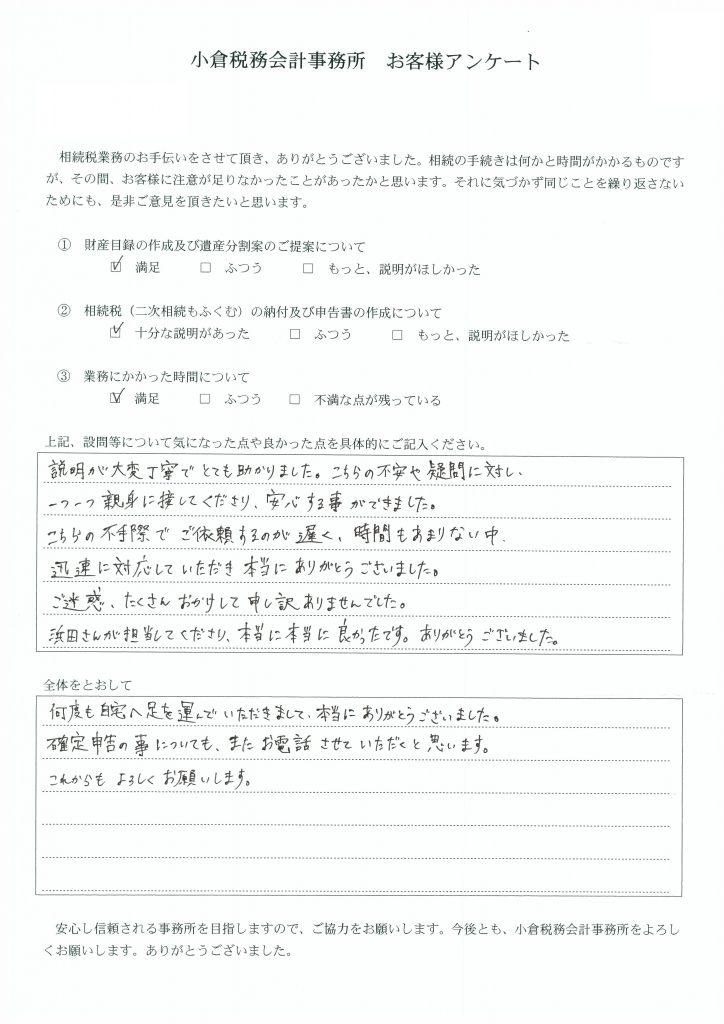 小倉税務会計事務所　お客様アンケート
相続税業務のお手伝いをさせて頂き、ありがとうございました。相続の手続きは何かと時間がかかるものです
が、その間、お客様に注意が足りなかったことがあったかと思います。それに気づかず同じことを繰り返さない
ためにも、是非ご意見を頂きたいと思います。
①　財産目録の作成及び遺産分割案のご提案について
☑　満足　□　ふつう　□　もっと、説明がほしかった
②　相続税（二次相続もふくむ）の納付及び申告書の作成について
☑　十分な説明があった　□　ふつう　□　もっと、説明がほしかった
③　業務にかかった時間について
☑　満足　□　ふつう　□　不満な点が残っている
上記、設問等について気になった点や良かった点を具体的にご記入ください。
説明が大変丁寧でとても助かりました。こちらの不安や疑問に対し、
一つ一つ親身に接してくださり、安心する事ができました。
こちらの不手際でご依頼するのが遅く、時間もあまりない中、
迅速に対応していただき本当にありがとうございました。
ご迷惑、たくさんおかけして申し訳ありませんでした。
浜田さんが担当してくださり、本当に本当に良かったです。ありがとうございました。
全体をとおして
何度も自宅へ足を運んでいただきまして、本当にありがとうございました。
確定申告の事についても、またお電話させていただくと思います。
これからもよろしくお願いします。
安心し信頼される事務所を目指しますので、ご協力をお願いします。今後とも、小倉税務会計事務所をよろし
くお願いします。ありがとうございました。